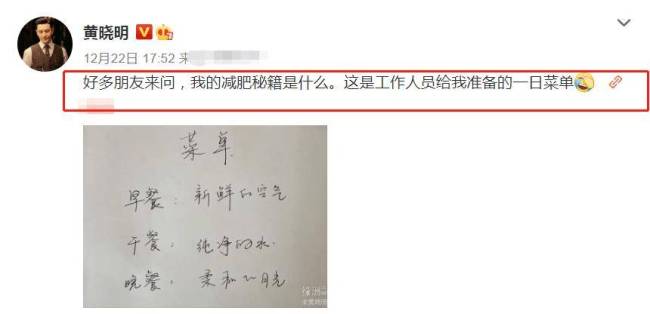 黄晓明
12月22日 17:52 来
好多朋友来问，我的减肥秘籍是什么。这是工作人员给我准备的一日菜单
菜单
早餐：新鲜的空气
午餐：纯净的水
晚餐：柔和的月光